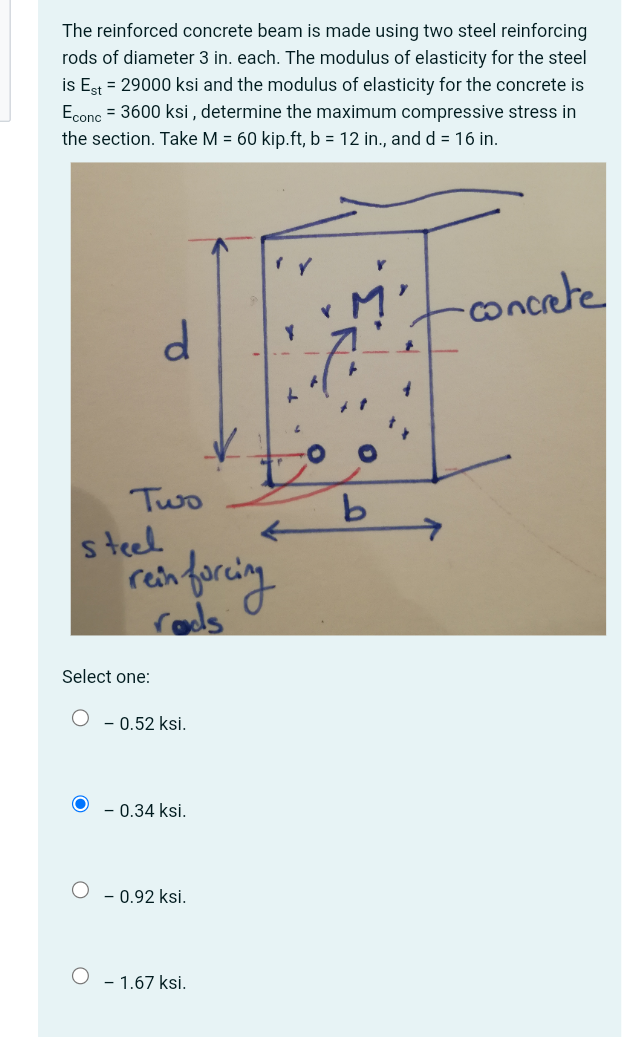 The reinforced concrete beam is made using two steel reinforcing
rods of diameter 3 in. each. The modulus of elasticity for the steel
is Est = 29000 ksi and the modulus of elasticity for the concrete is
Econc = 3600 ksi , determine the maximum compressive stress in
the section. Take M = 60 kip.ft, b = 12 in., and d = 16 in.
M
concrete
d
Two
steel
reinforcing
rods
b
Select one:
– 0.52 ksi.
– 0.34 ksi.
– 0.92 ksi.
– 1.67 ksi.